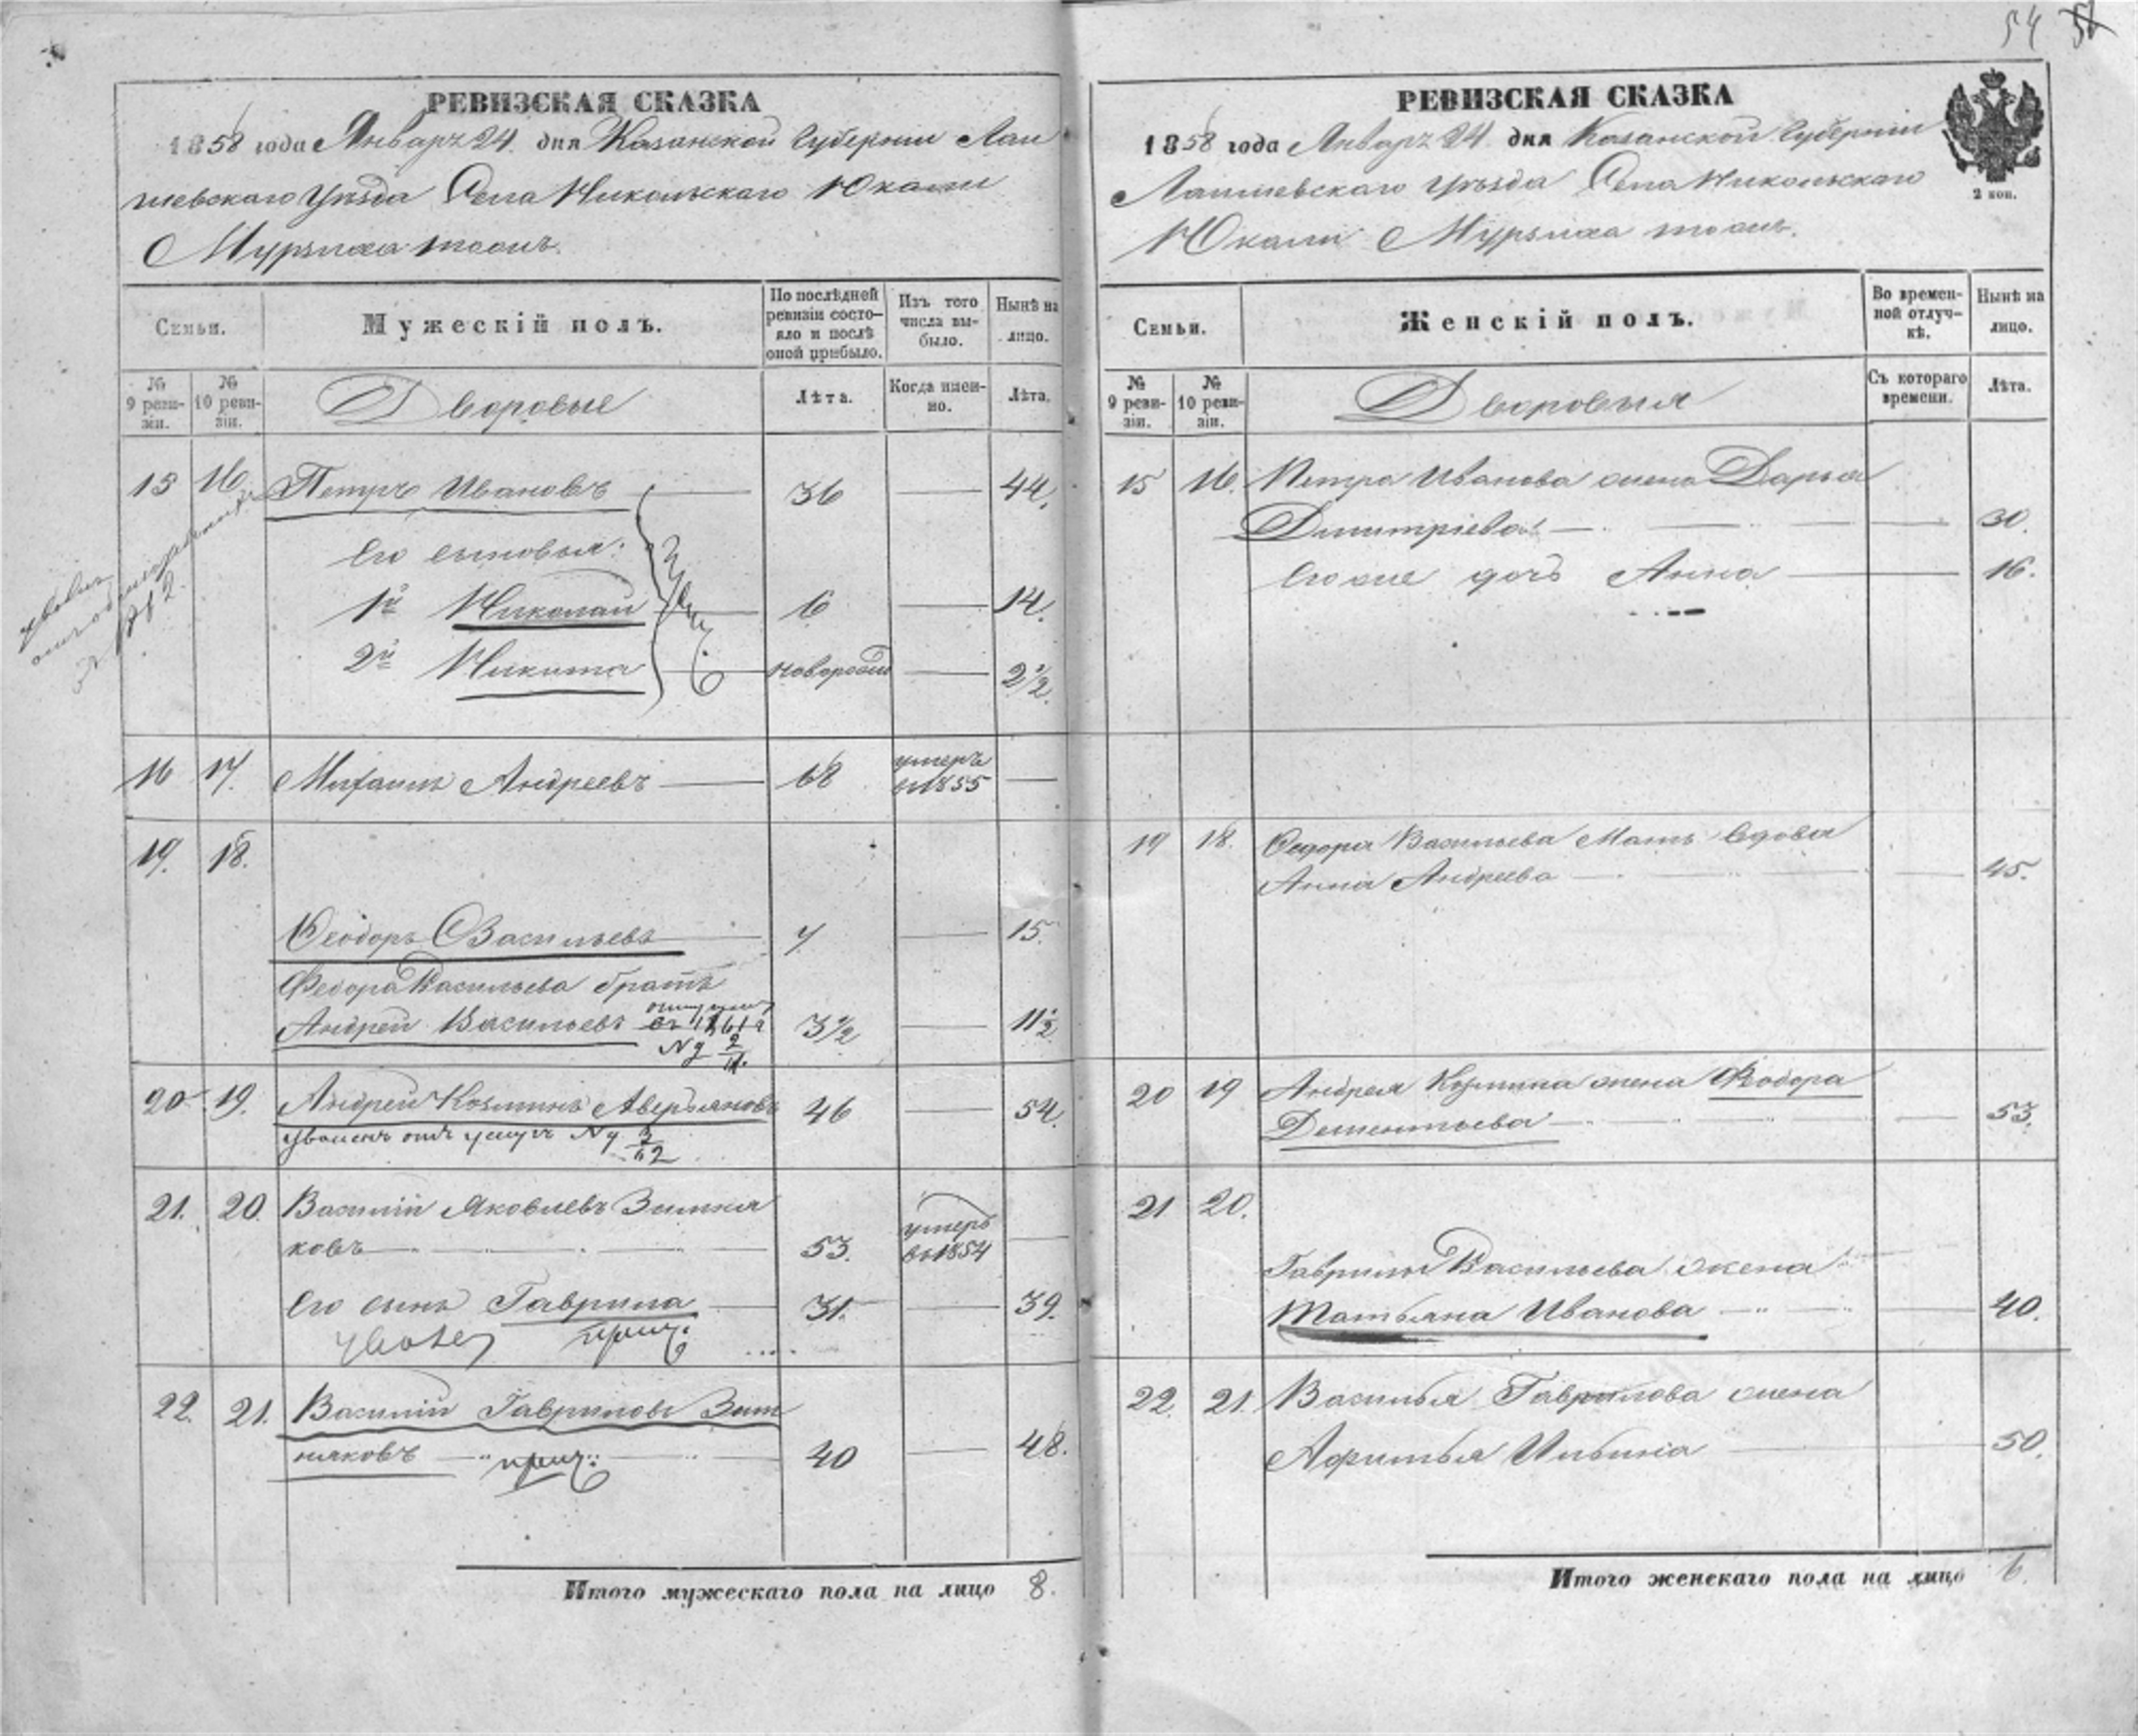 54
РЕВИЗСКАЯ СКАЗКА
1858 года Январь 24 дня Казанской Губернии Лаи
шевскаго Уѣзда Села Никольскаго Юкачи
Мурзиха тожъ.
Семьи.
Мужескій полъ.
По послѣдней ревизіи состо-
яло и послѣ
оной прибыло.
Изъ того
числа вы-
было.
Нынѣ на
лицо.
№ 9 реви-
зіи.
№ 10 реви-
зіи.
Дворовые
Лѣта.
Когда имен-
но.
Лѣта.
15 16 Петръ Ивановъ 36 44.
Его сыновья:
1й Николай 6 14.
2й Никита новорожд 2 1/2
16 17. Михаилъ Андреевъ 68 умеръ
въ 1855
19. 18.
Ѳеодоръ Васильевъ 7 15.
Федора Васильева братъ
Андрей Васильевъ 3 1/2 11 1/2
въ 1861 г
20 19. Андрей Козминъ Аверьяновъ 46 54.
уволенъ отъ услугъ
21. 20. Василий Яковлевъ Зимня
ковъ 53. умеръ
въ 1854
Его сынъ Гаврила 31. 39.
22. 21. Василий Гавриловъ Зим
няковъ 40 48.
Итого мужескаго пола на лицо 8.
РЕВИЗСКАЯ СКАЗКА
1858 года Январь 24 дня Казанской Губернии
Лаишевскаго Уѣзда Села Никольскаго
Юкачи Мурзиха тожъ.
2 коп.
Семьи.
Женскій полъ.
Во времен-
ной отлуч-
кѣ.
Нынѣ на
лицо.
№ 9 реви-
зіи.
№ 10 реви-
зіи.
Дворовыя
Съ котораго
времени.
Лѣта.
15 16. Петра Иванова жена Дарья
Дмитріева 30.
Его же дочь Анна 16.
19 18. Федора Васильева Мать вдова
Анна Андреева 45.
20 19 Андрея Козмина жена Ѳедора
Дементьева 53.
21 20.
Гаврилы Васильева жена
Татьяна Иванова 40.
22. 21. Василья Гаврилова жена
Афимья Ильина 50.
Итого женскаго пола на лицо 6.